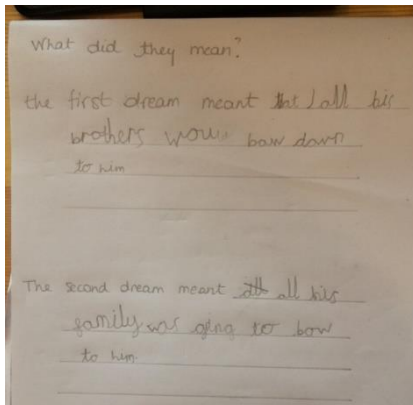 What did they mean?
the first dream meant that all his
brothers woul baw down
to him
The second dream meant all his
family was going to bow
to him.